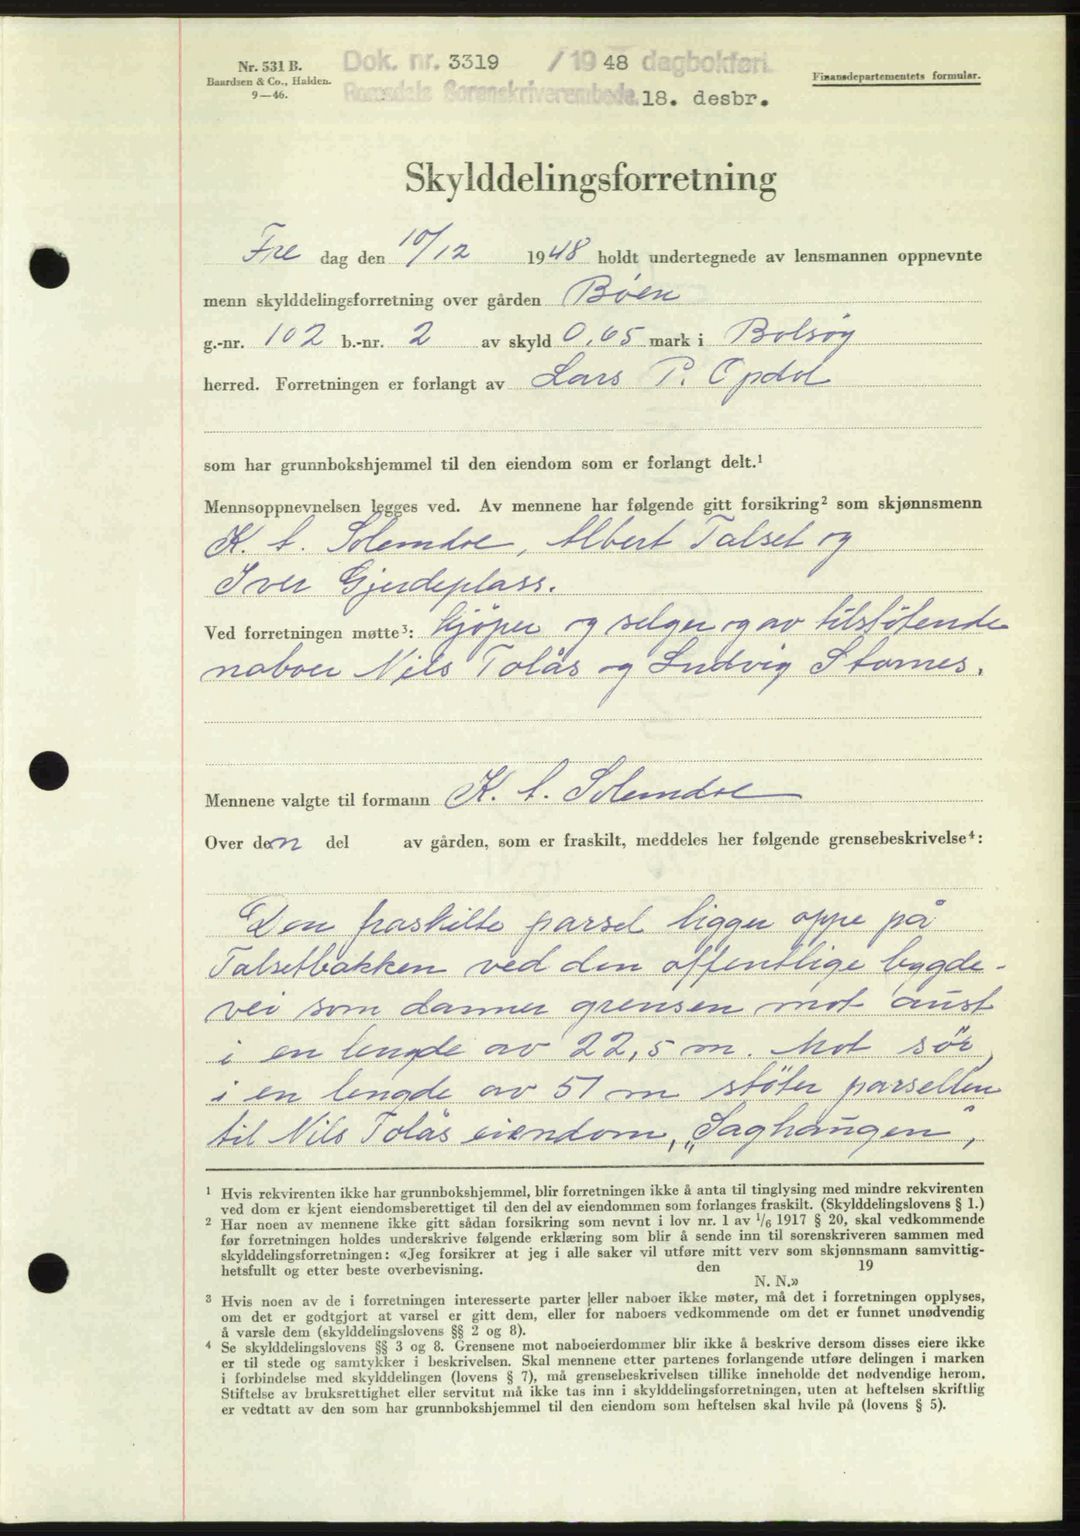 Nr. 531 B.
Baardsen & Co., Halden.
9—46.
Dok. nr. 3319 / 1948 dagbokført.
Romsdals Sorenskriverembede. 18. desbr.
Finansdepartementets formular.
Skylddelingsforretning
Fre dag den 10/12 1948 holdt undertegnede av lensmannen oppnevnte
menn skylddelingsforretning over gården Bøen
g.-nr. 102 b.-nr. 2 av skyld 0,65 mark i Bolsøy
herred. Forretningen er forlangt av Lars P. Opdøl
som har grunnbokshjemmel til den eiendom som er forlangt delt.¹
Mennsoppnevnelsen legges ved. Av mennene har følgende gitt forsikring² som skjønnsmenn
K. A. Solemdal, Albert Talset og
Iver Gjerdeplass.
Ved forretningen møtte³: kjøper og selger og av tilstøtende
naboer Nils Tolås og Ludvig Stornes.
Mennene valgte til formann K. A. Solemdal
Over den del av gården, som er fraskilt, meddeles her følgende grensebeskrivelse⁴:
Den fraskilte parsel ligger oppe på
Talsetbakken ved den offentlige bygde-
vei som danner grensen mot aust
i en lengde av 22,5 m. Mot sør,
i en lengde av 51 m støter parsellen
til Nils Tolås eiendom, „Saghaugen",
¹ Hvis rekvirenten ikke har grunnbokshjemmel, blir forretningen ikke å anta til tinglysing med mindre rekvirenten
ved dom er kjent eiendomsberettiget til den del av eiendommen som forlanges fraskilt. (Skylddelingslovens § 1.)
² Har noen av mennene ikke gitt sådan forsikring som nevnt i lov nr. 1 av 1/6 1917 § 20, skal vedkommende
før forretningen holdes underskrive følgende erklæring som blir å sende inn til sorenskriveren sammen med
skylddelingsforretningen: «Jeg forsikrer at jeg i alle saker vil utføre mitt verv som skjønnsmann samvittig-
hetsfullt og etter beste overbevisning. den 19
N. N.»
³ Hvis noen av de i forretningen interesserte parter eller naboer ikke møter, må det i forretningen opplyses,
om det er godtgjort at varsel er gitt dem, eller for naboers vedkommende om det er funnet unødvendig
å varsle dem (skylddelingslovens §§ 2 og 8).
⁴ Se skylddelingslovens §§ 3 og 8. Grensene mot naboeierdommer blir ikke å beskrive dersom disses eiere ikke
er til stede og samtykker i beskrivelsen. Skal mennene etter partenes forlangende utføre delingen i marken
i forbindelse med skylddelingen (lovens § 7), må grensebeskrivelsen tillike inneholde det nødvendige herom.
Stiftelse av bruksrettighet eller servitut må ikke tas inn i skylddelingsforretningen, uten at heftelsen skriftlig
er vedtatt av den som har grunnbokshjemmel til den eiendom som heftelsen skal hvile på (lovens § 5).